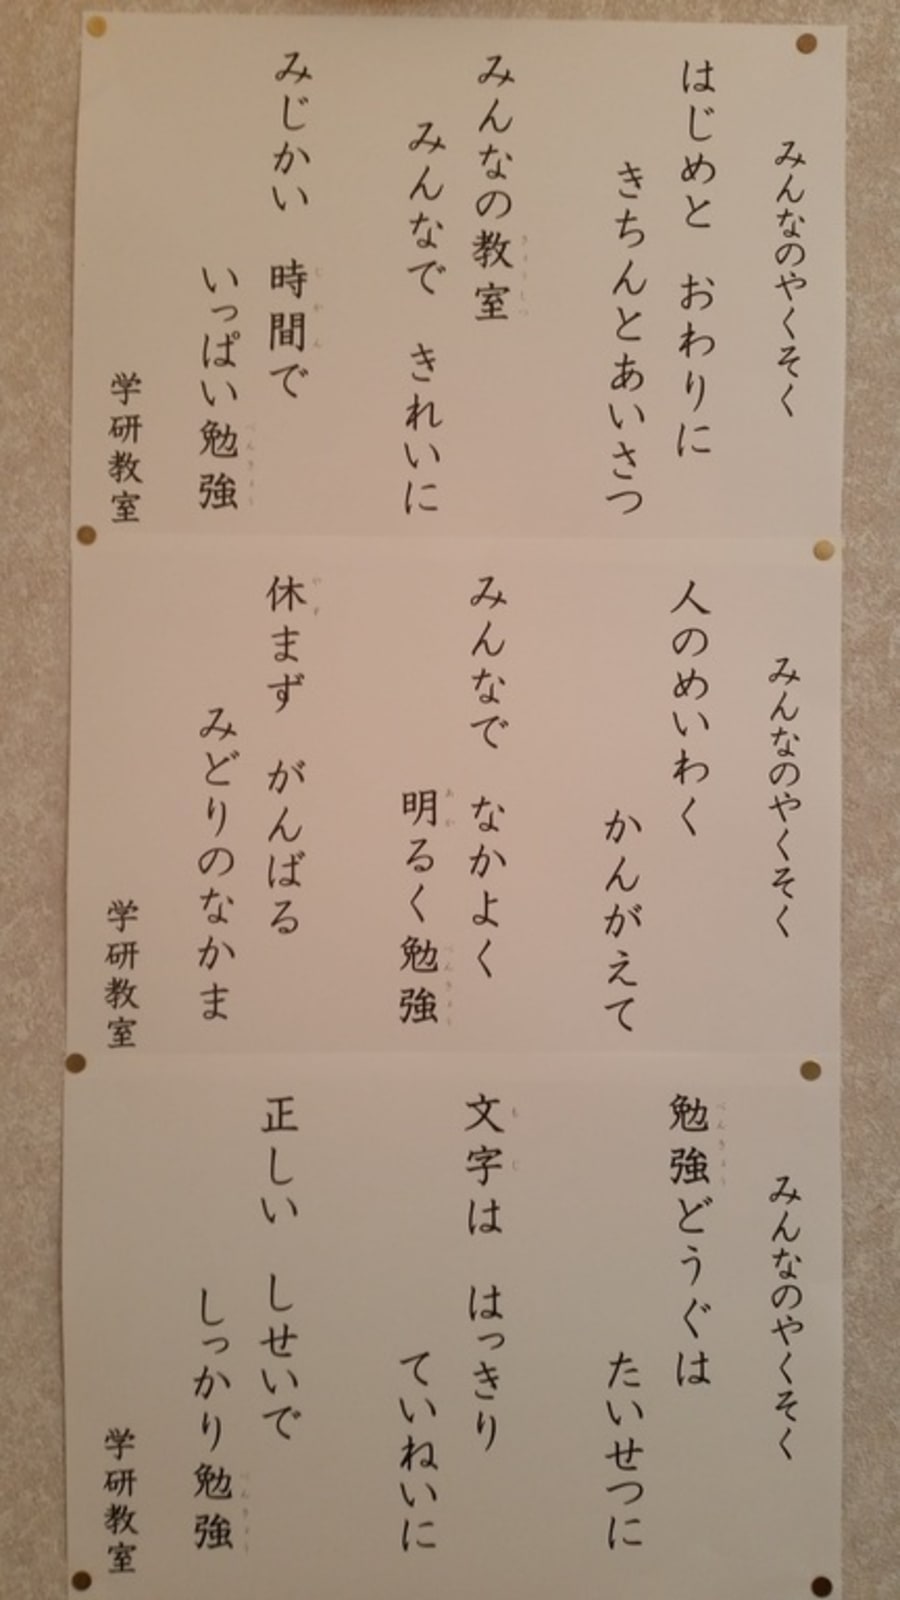 みんなのやくそく
はじめと　おわりに
きちんとあいさつ
みんなの教室
みんなで　きれいに
みじかい　時間で
いっぱい勉強
学研教室
みんなのやくそく
人のめいわく
かんがえて
みんなで　なかよく
明るく勉強
休まず　がんばる
みどりのなかま
学研教室
みんなのやくそく
勉強どうぐは
たいせつに
文字は　はっきり
ていねいに
正しい　しせいで
しっかり勉強
学研教室